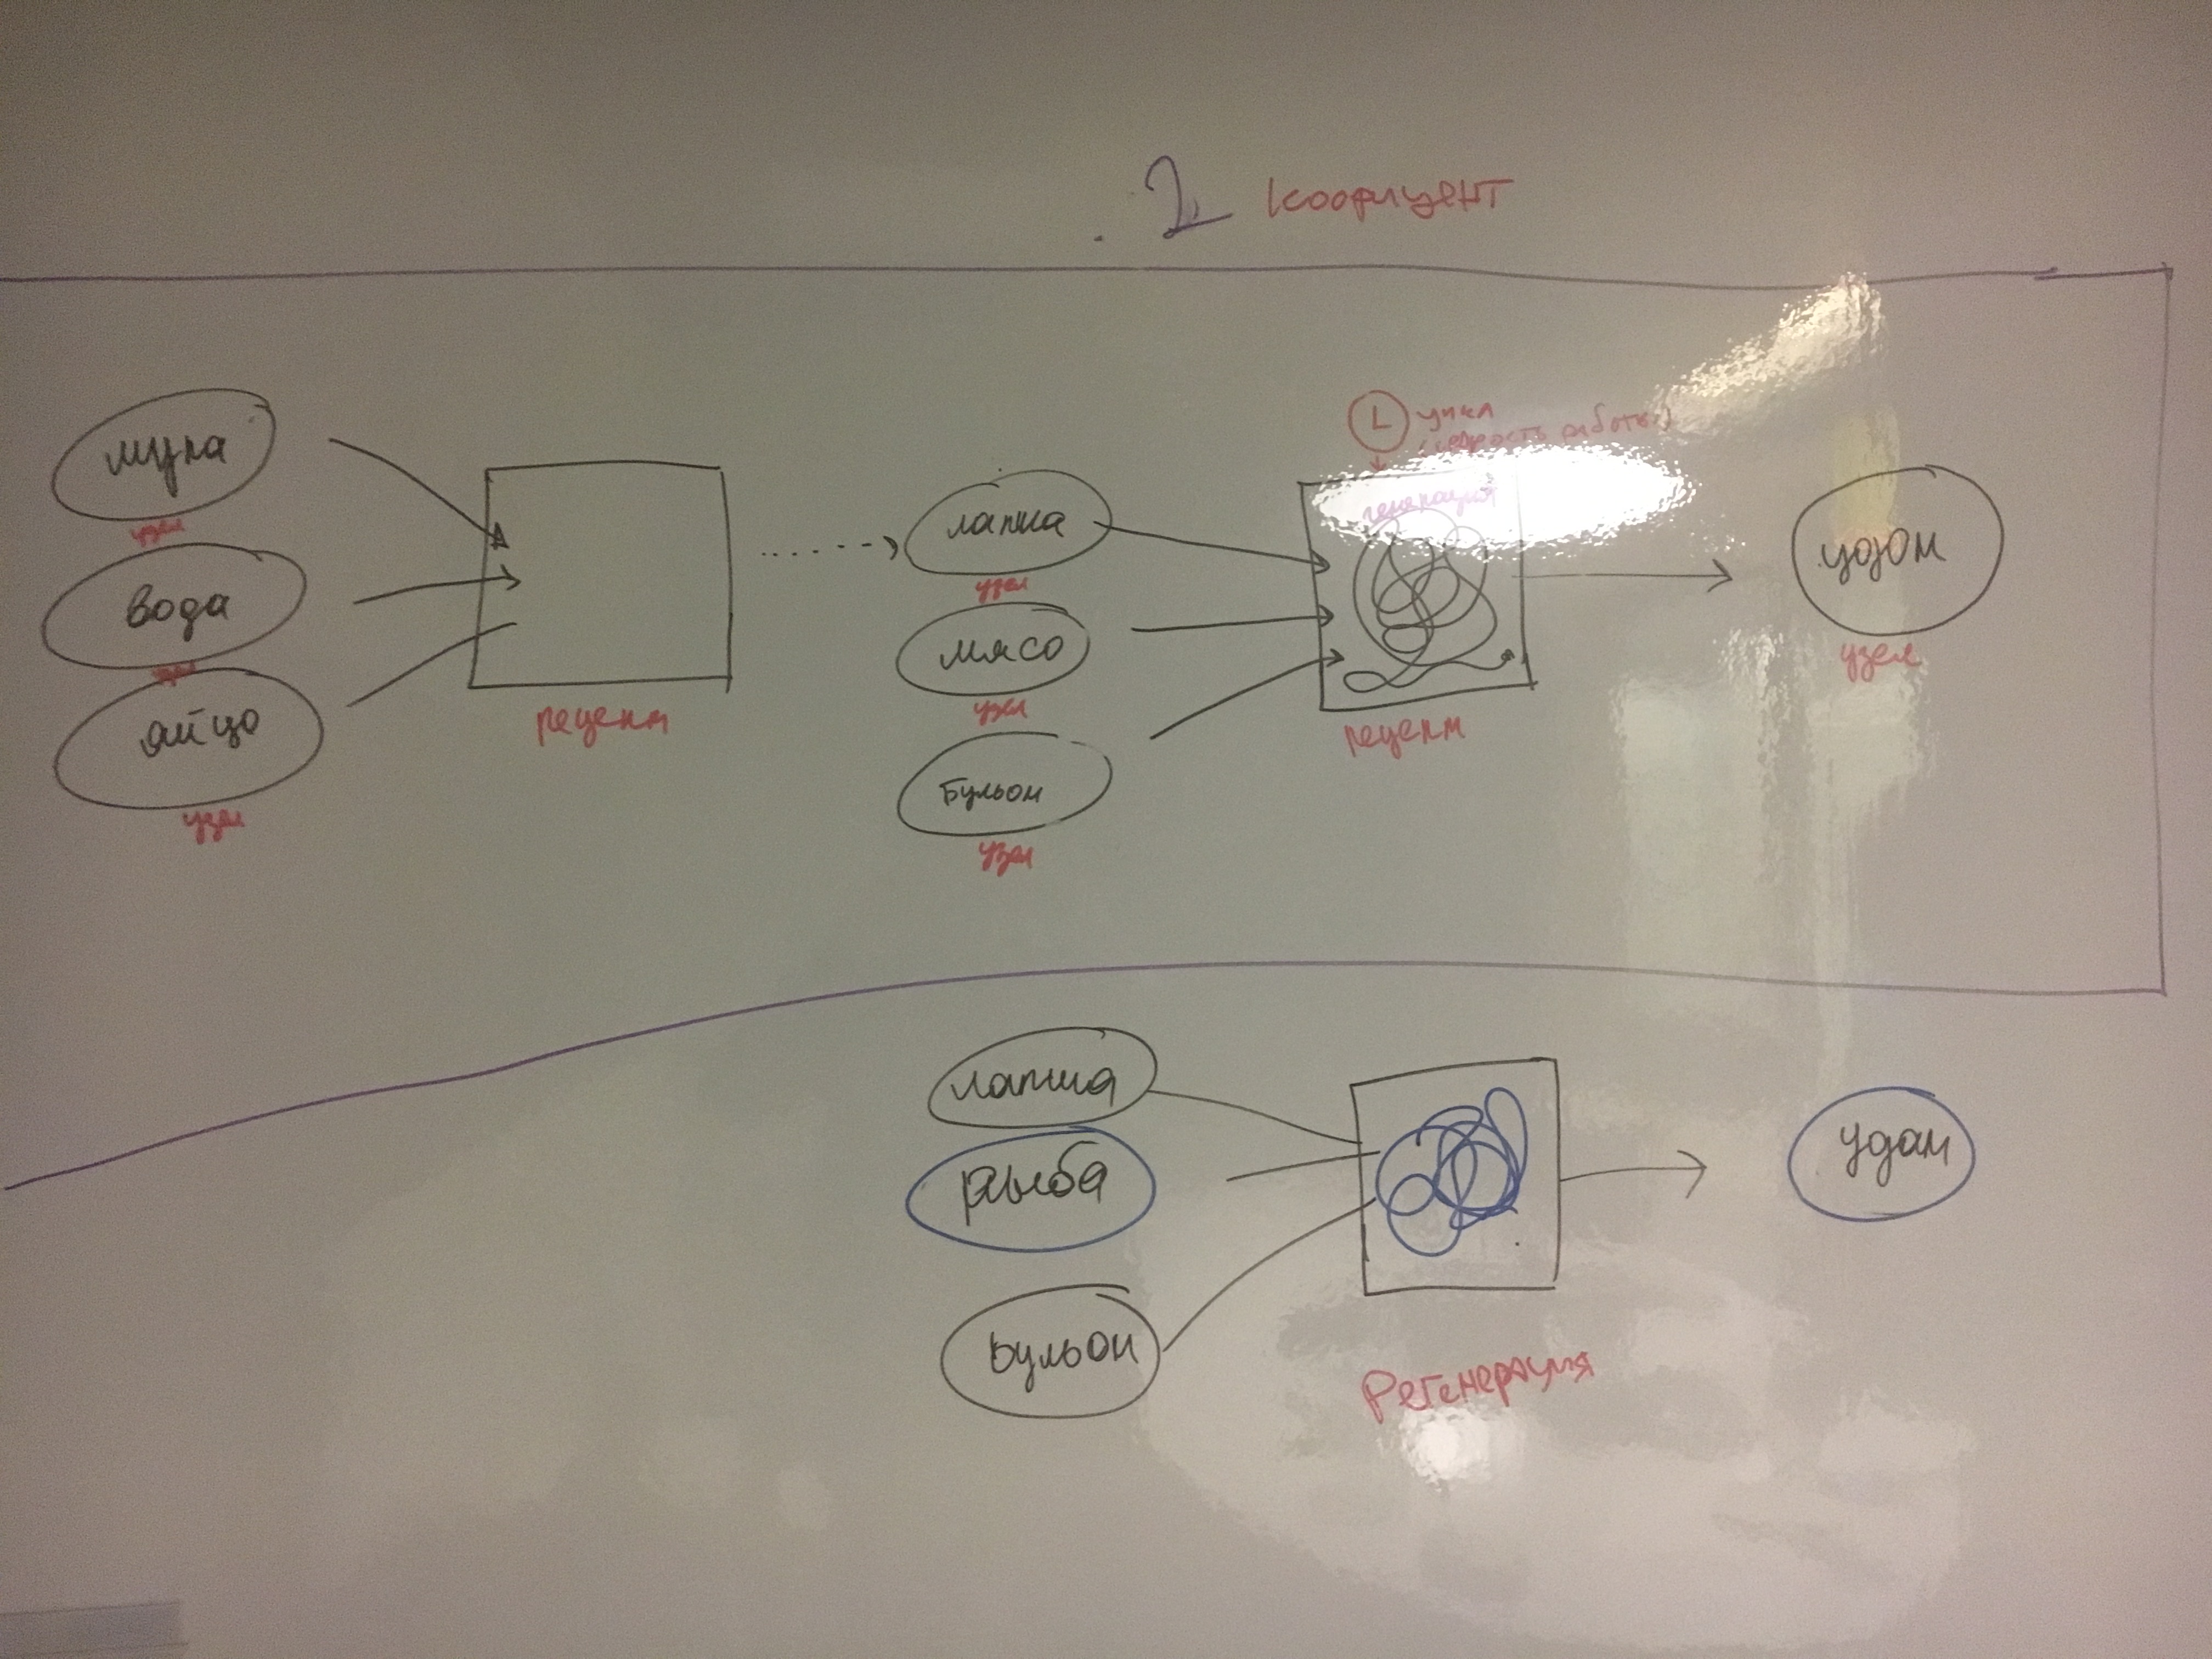 2 коофицент
мука
узел
вода
узел
яйцо
узел
рецепт
лапша
узел
мясо
узел
Бульон
узел
L цикл
(скорость работы)
генерация
рецепт
удон
узел
лапша
рыба
бульон
Регенерация
удон